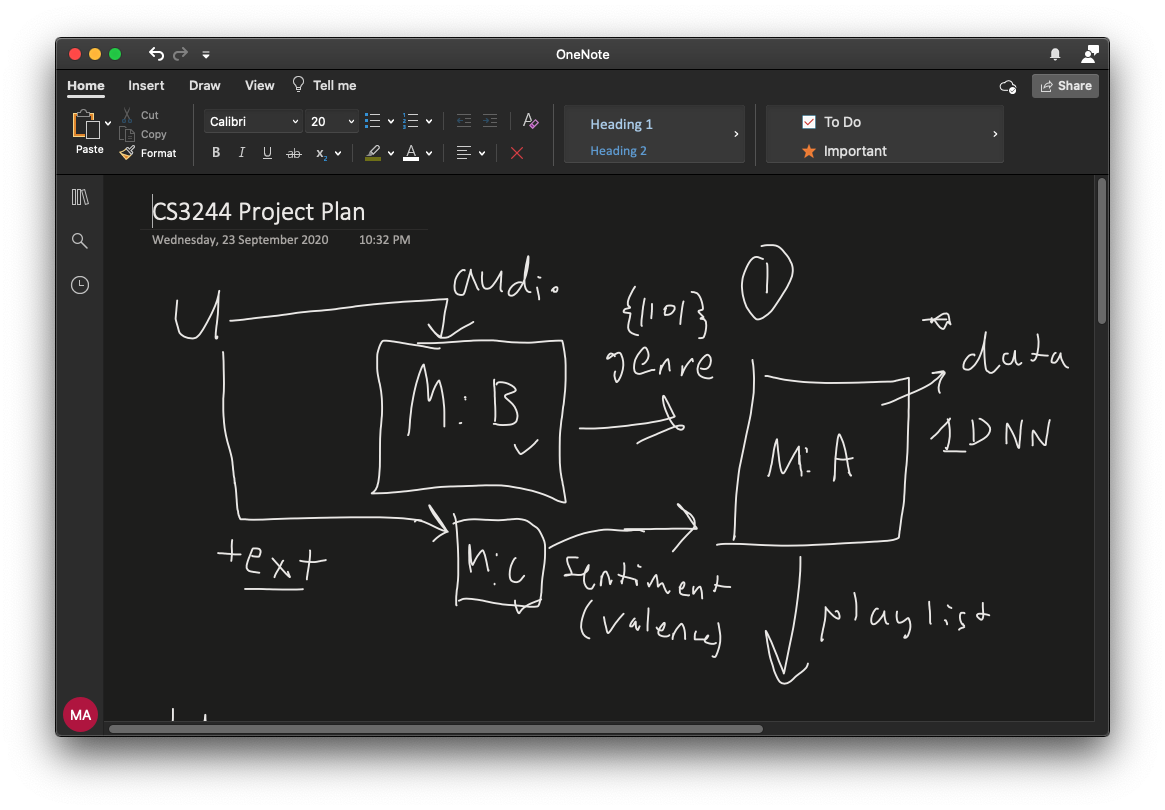 OneNote
Home Insert Draw View Tell me Share
Paste Cut Copy Format
Calibri 20
B I U ab x₂ A
Heading 1
Heading 2
To Do
Important
CS3244 Project Plan
Wednesday, 23 September 2020 10:32 PM
U
audio
M: B
{1101}
genre
1
M: A
data
1D NN
text
M: C
sentiment
(valence)
playlist
MA